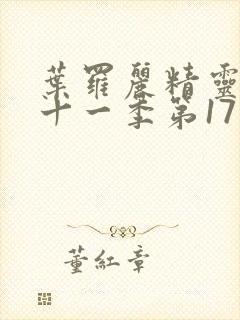 葉羅麗精靈
十一季第17
董紅章